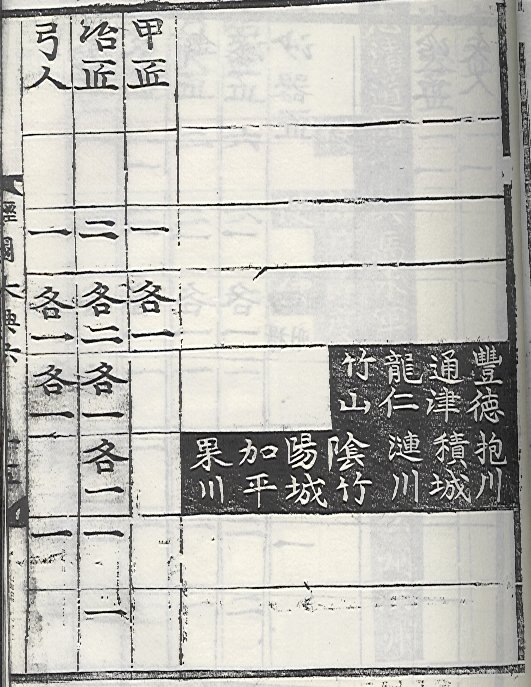 豐徳
通津
龍仁
竹山
抱川
積城
漣川
陰竹
陽城
加平
果川
甲匠
一
各一
冶匠
二
各二
各一
各一
一
一
弓人
一
各一
各一
一